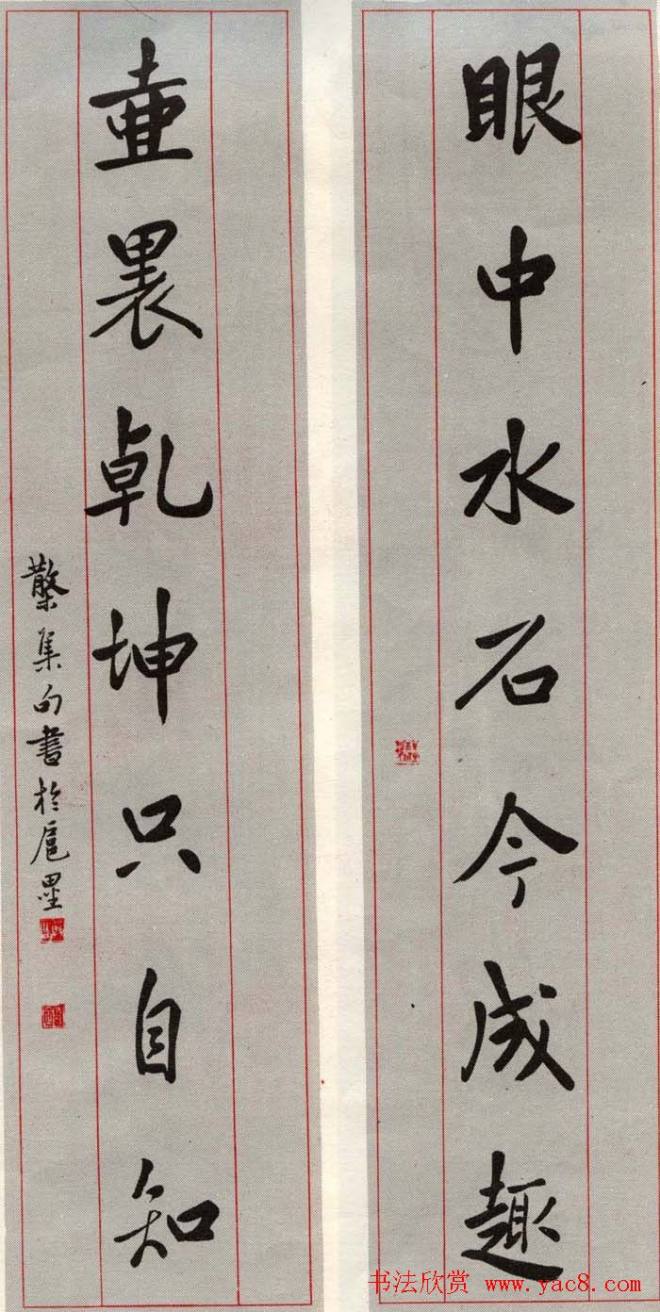 眼中水石今成趣
壷裏乾坤只自知
集句書於
书法欣赏 www.yac8.com